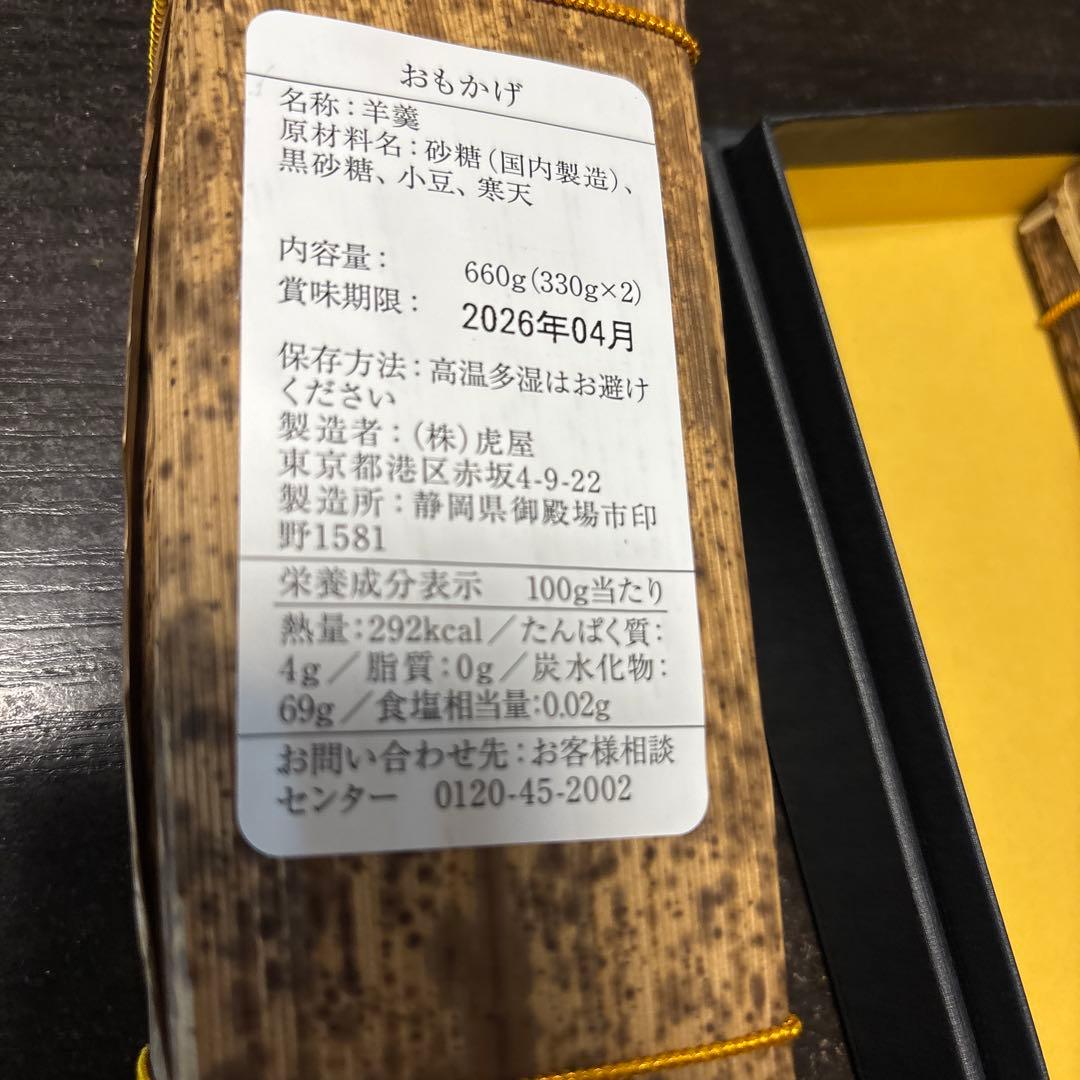 おもかげ
名称：羊羹
原材料名：砂糖（国内製造）、
黒砂糖、小豆、寒天
内容量： 660g（330g×2）
賞味期限： 2026年04月
保存方法：高温多湿はお避け
ください
製造者：（株）虎屋
東京都港区赤坂4-9-22
製造所：静岡県御殿場市印
野1581
栄養成分表示 100g当たり
熱量：292kcal／たんぱく質：
4g／脂質：0g／炭水化物：
69g／食塩相当量：0.02g
お問い合わせ先：お客様相談
センター 0120-45-2002